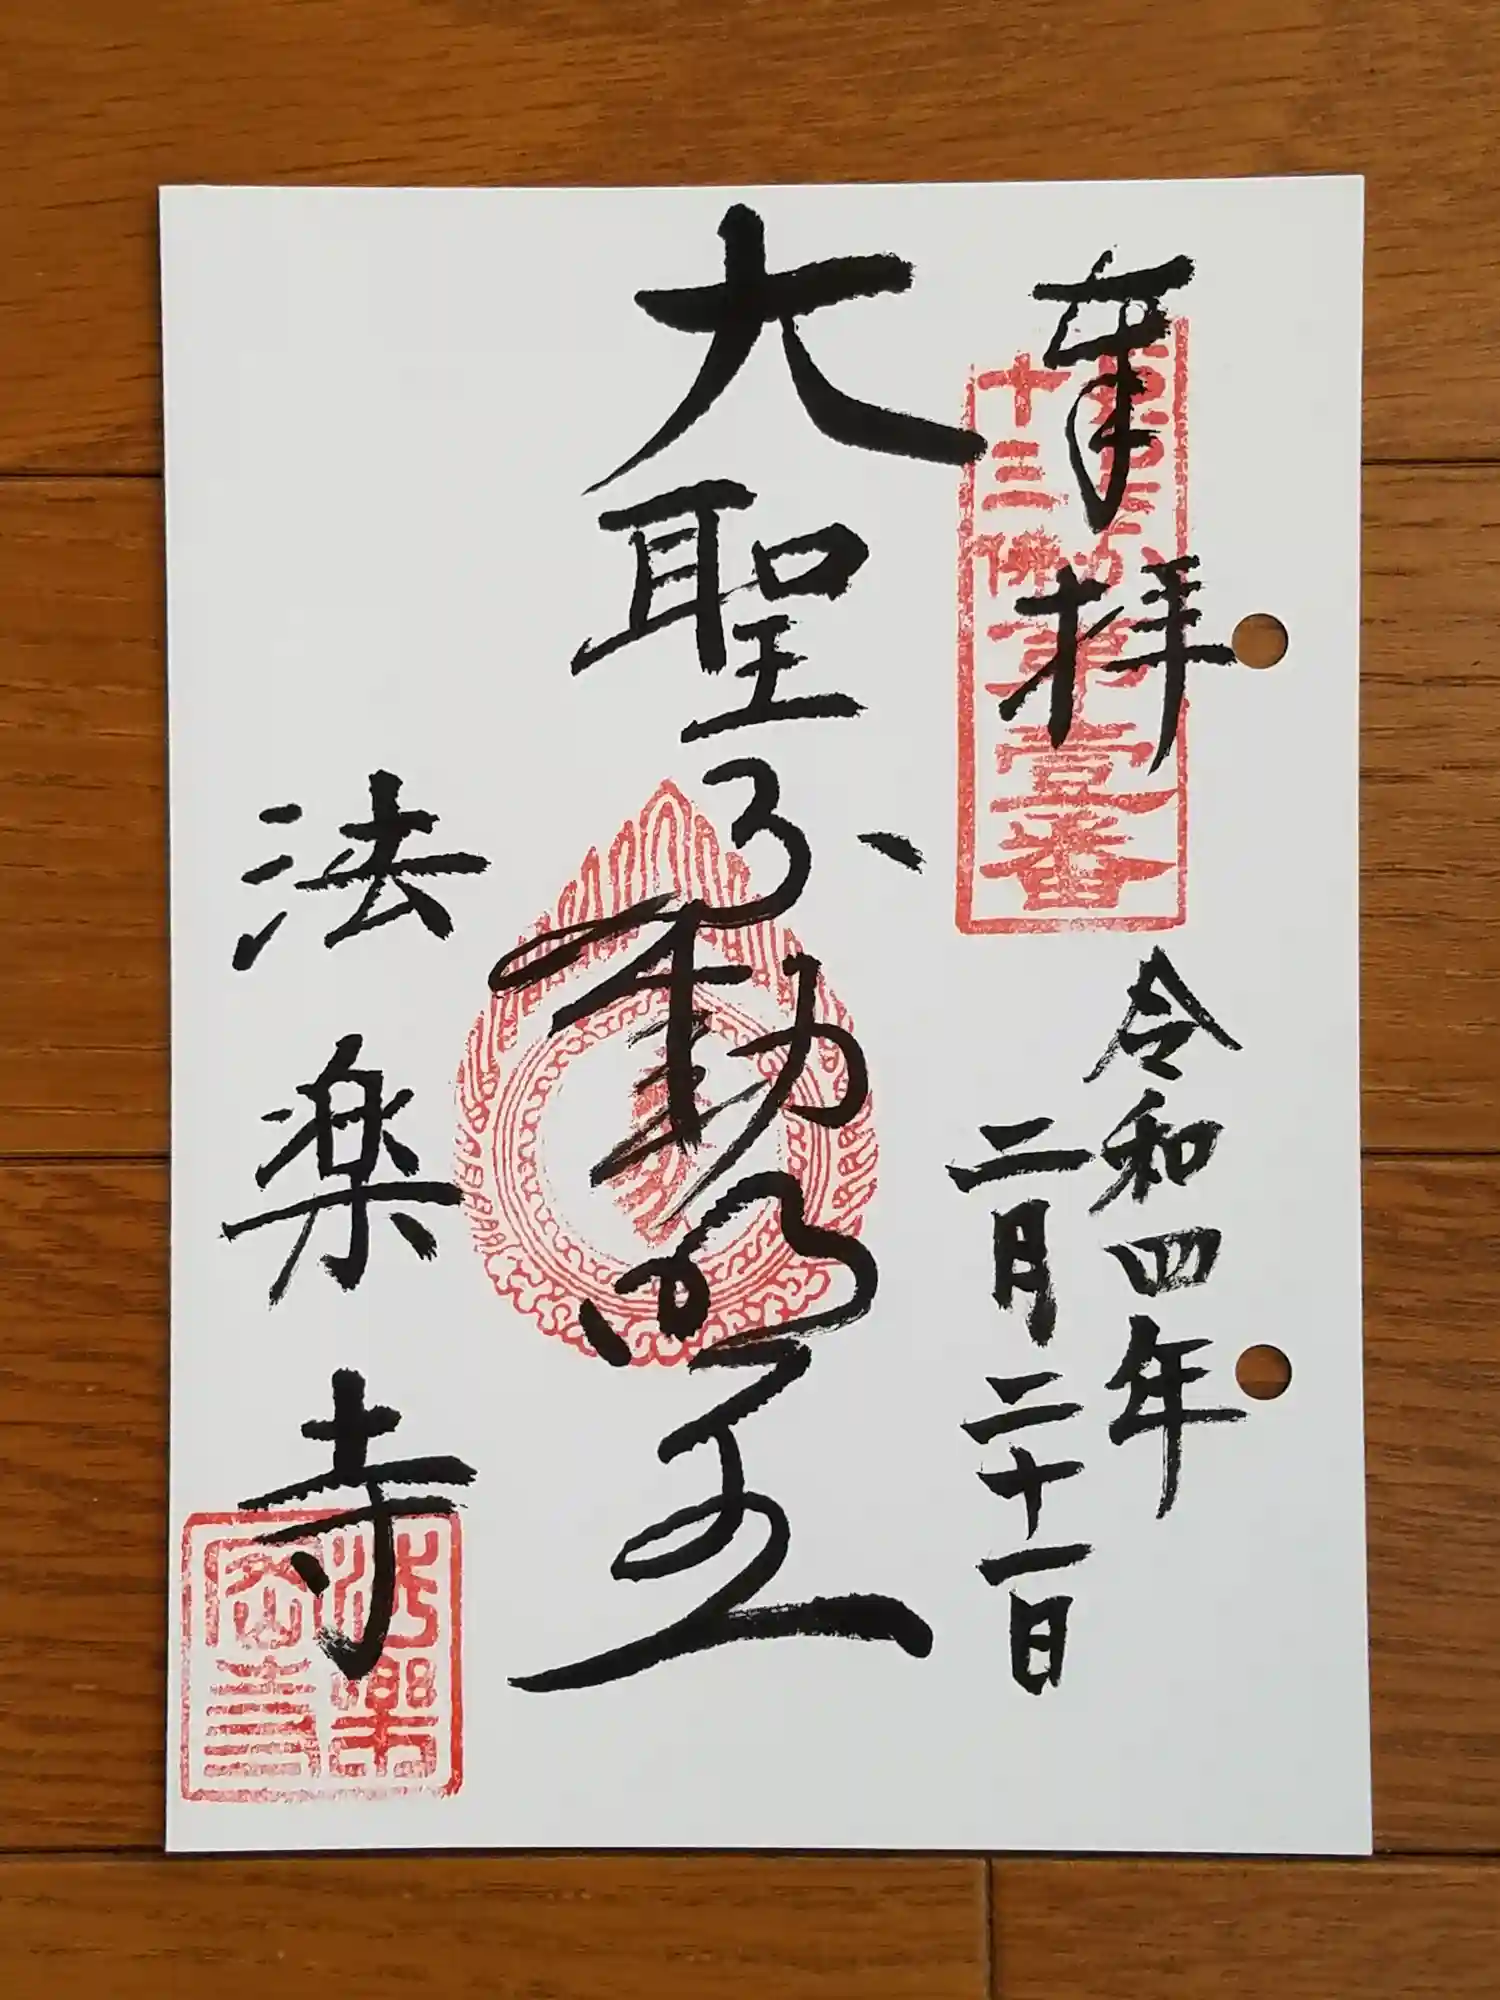 奉拝
十三佛第壹番
令和四年
二月二十一日
大聖不動明王
法楽寺